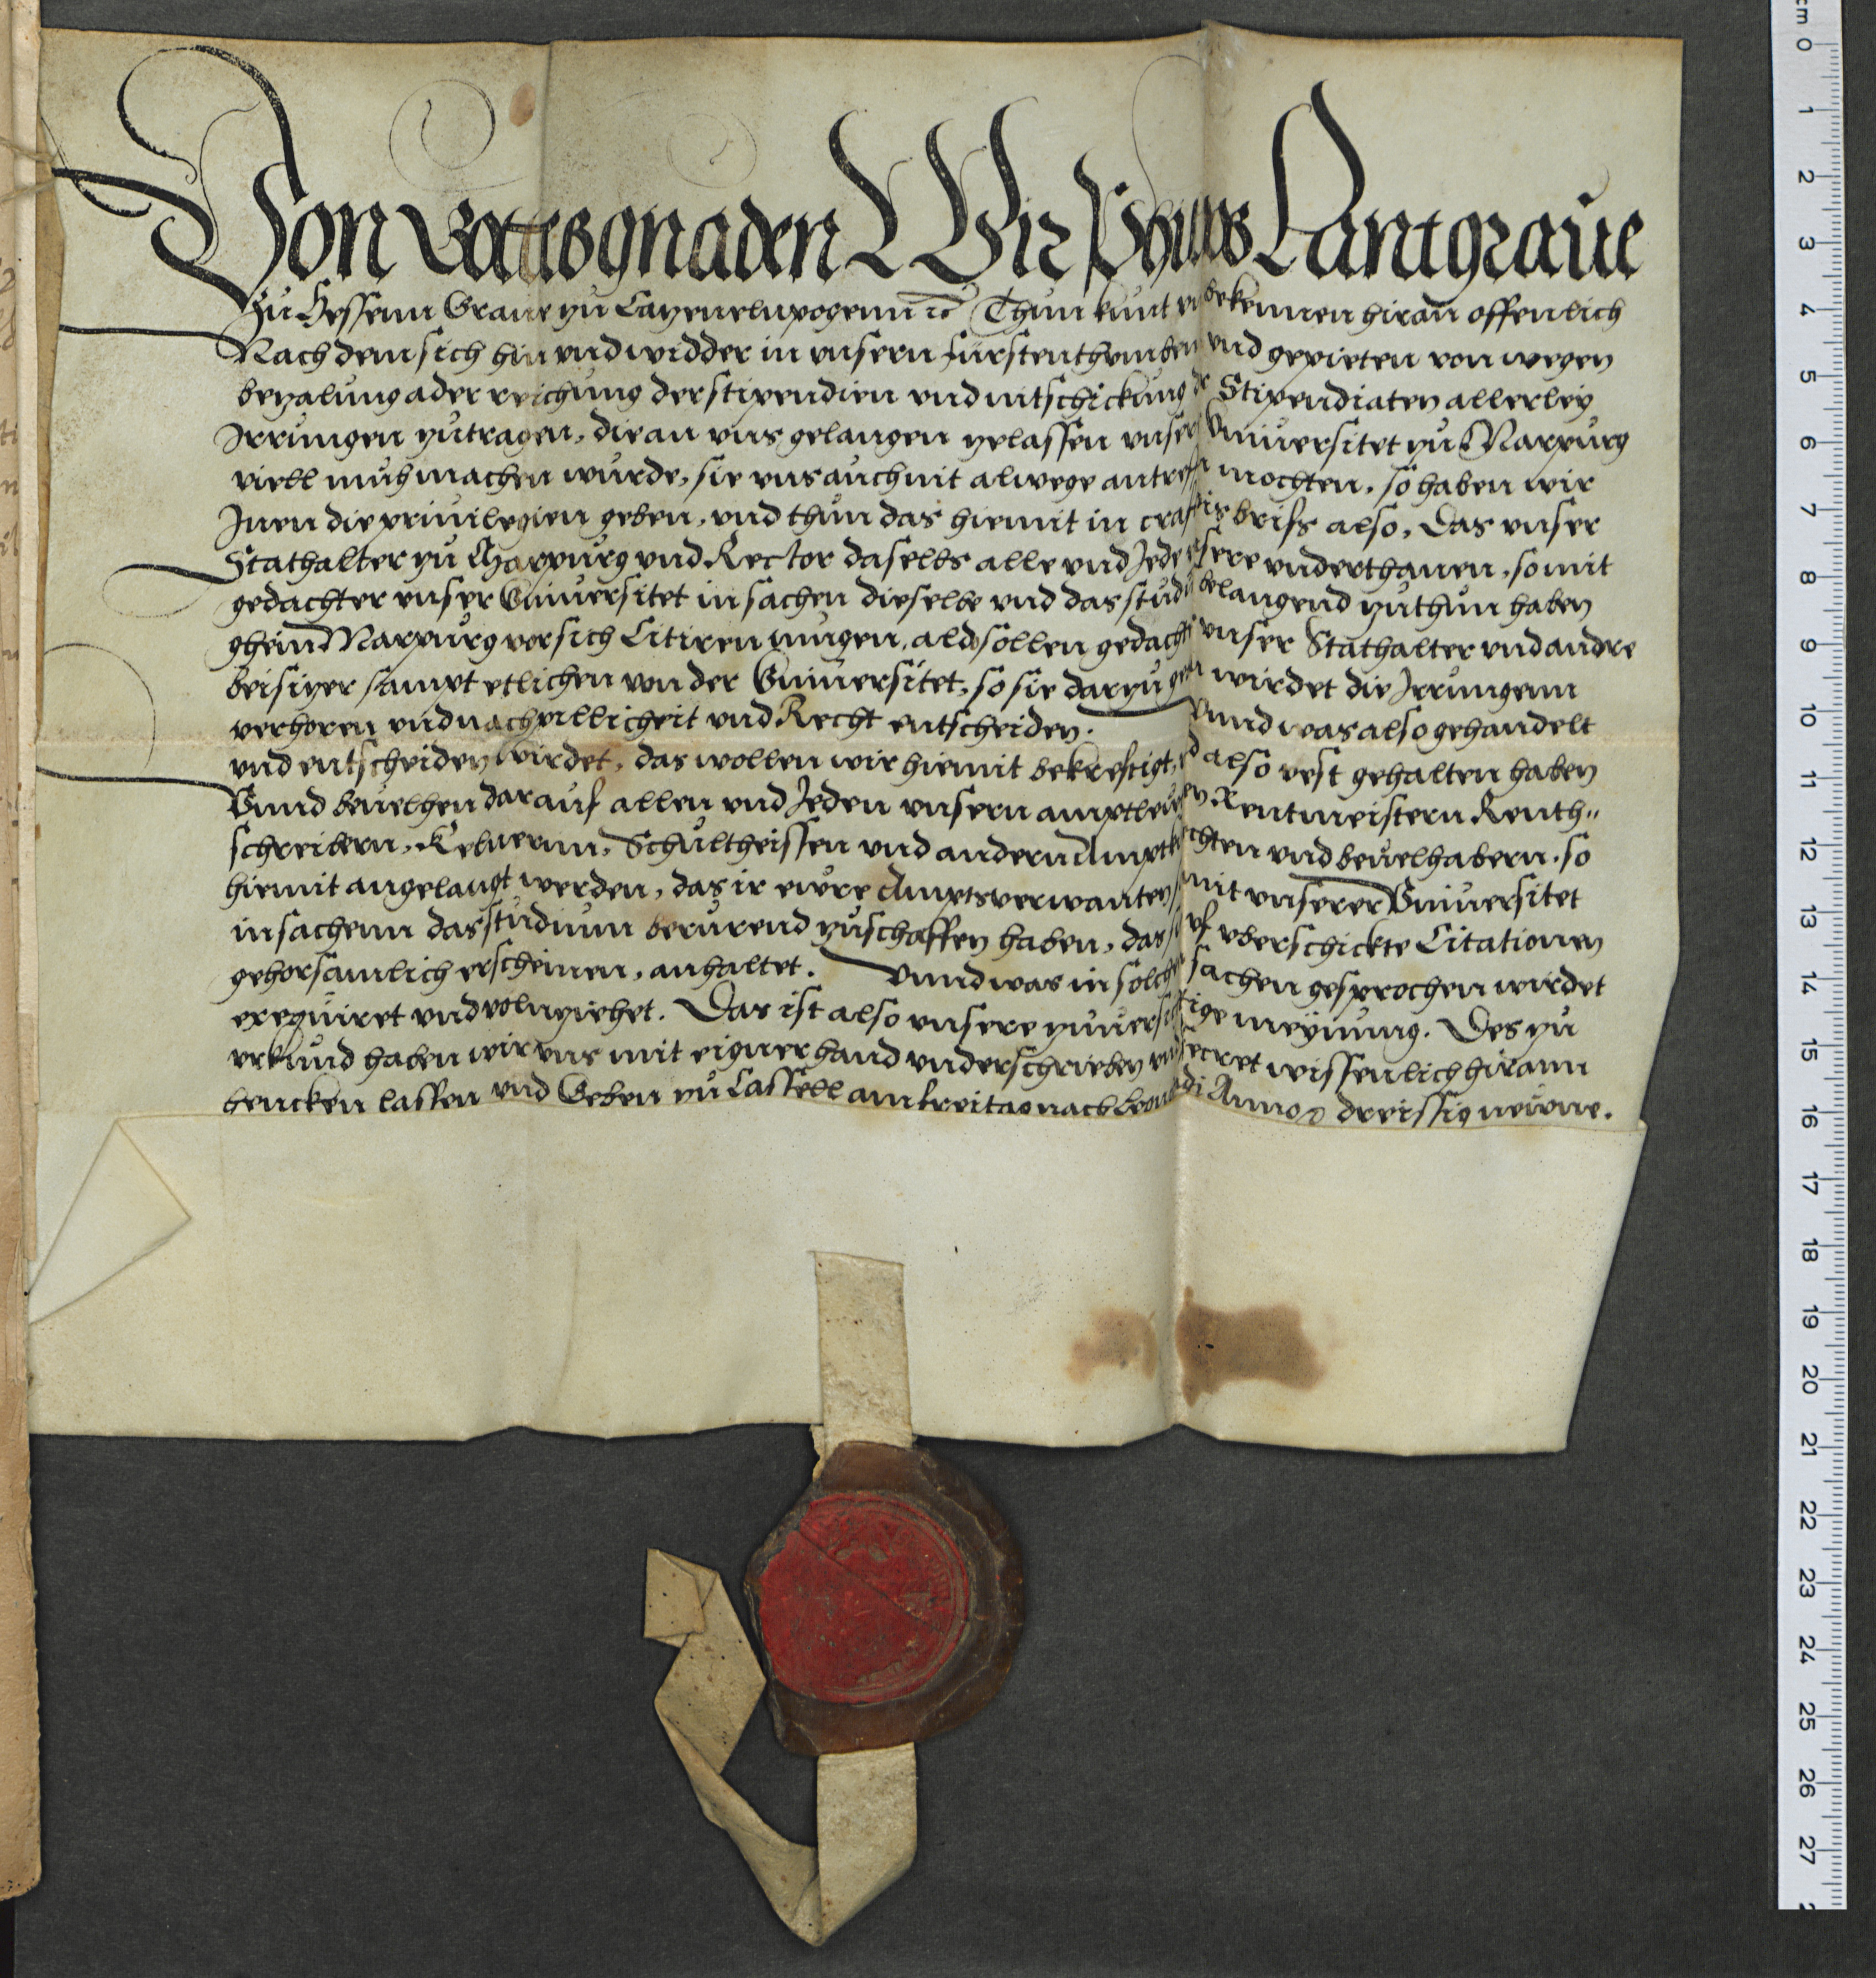 Von Gottes gnaden Wir Philips Lantgraue
Zu Hessenn Graue zu Catzenelnpogenn ꝛc Thun kunt bekennen hiran offenlich
Nach dem sich hin vnd widder in vnsern furstenthumben vnd gepieten von wegen
bezalung ader reichung der stipendien vnd vitschickung der Stipendiaten allerley
Irrungen zutragen, die an vns gelangen zelassen vnser Vniuersitet zu Marpurg
viell muh machen wurde, sie vns auch nit alwege antreffen mochten, so haben wir
Inen die priuilegien geben, vnd thun das hiemit in craft briefs also, Das vnser
Stathalter zu Marpurg vnd Rector daselbs alle vnd Jede vnsere vnderthanen, so mit
gedachter vnser Vniuersitet in sachen dieselbe vnd das studium belangend zuthun haben
ghein Marpurg vor sich Citiren mugen, alda sollen gedachte vnser Stathalter vnd andre
beisitzer sampt etlichen von der Vniuersitet, so sie darzu wirdet die Irrungenn
verhoren vnd nach pillicheit vnd Recht entscheiden. Vnnd was also gehandelt
vnd entscheiden wirdet, das wollen wir hiemit bekrefftigt, also vest gehalten haben
Vnnd beuelhen darauf allen vnd Jeden vnsern amptleuten Rentmeistern Renth"
schreibern, Kelnernn, Schultheissen vnd andern Amptknechten vnd beuelhabern, so
hiemit angelangt werden, das ir ewre Amptsverwanten, mit vnserer Vniuersitet
in sachenn das studium berurend zuschaffen haben, das vf vberschickte Citationen
gehorsamlich erscheinen, anhaltet. Vnnd was in solchen sachen gesprochen wirdet
exequiret vnd volnziehet. Das ist also vnsere zuuersichtige meynung. Des zu
vrkund haben wir vns mit eigner hand vnderschrieben vnd Secret wissenlich hirann
hencken lassen vnd Geben zu Cassell am freitag nach Leonhardi Anno ꝛc dreissig neune.
cm 0
1
2
3
4
5
6
7
8
9
10
11
12
13
14
15
16
17
18
19
20
21
22
23
24
25
26
27